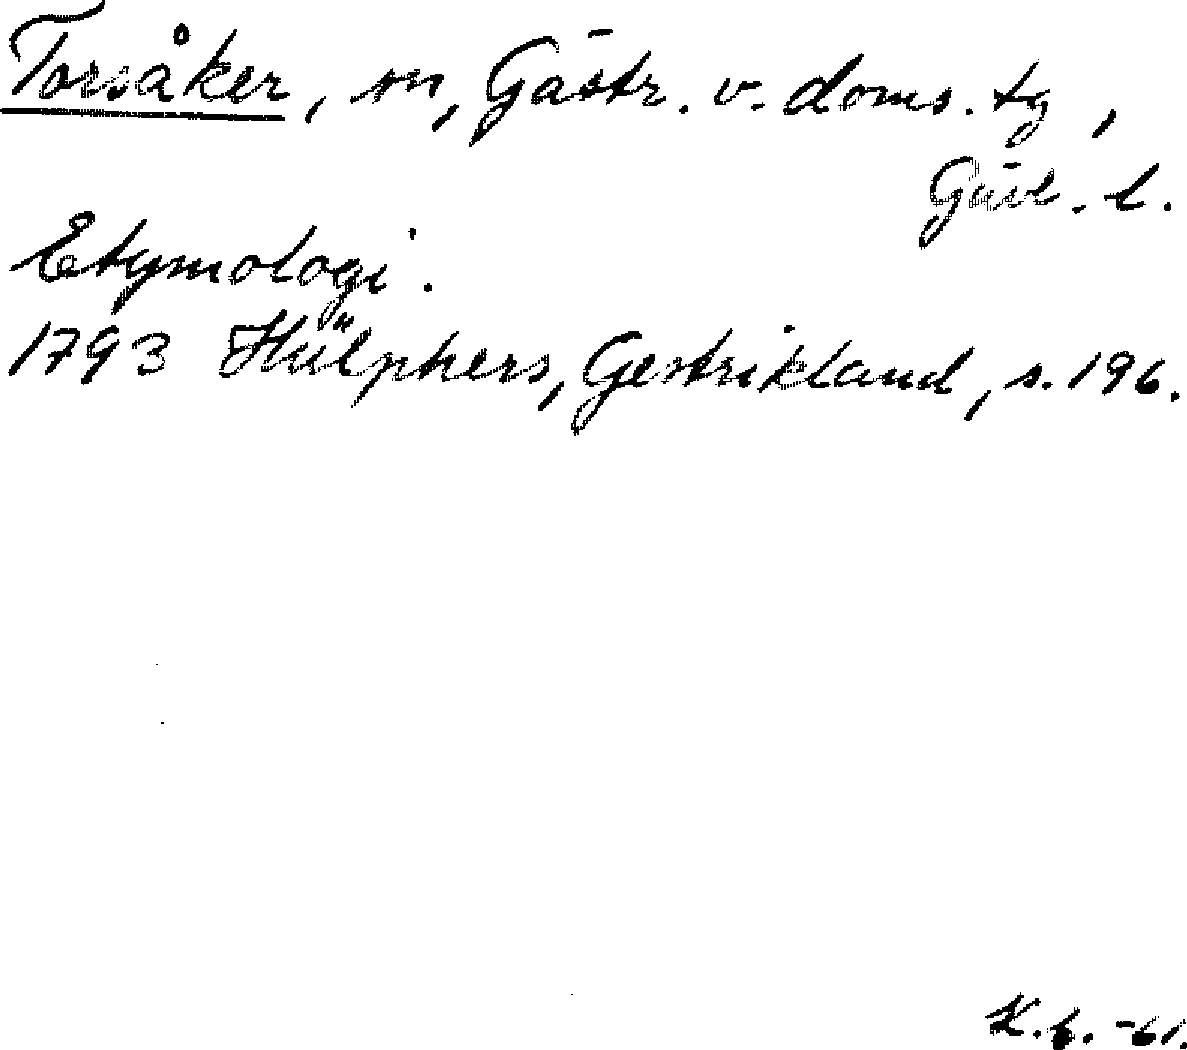 Torsåker, sn, Gästr. v. doms. tg,
Gävl. l.
Etymologi.
1793 Hülphers, Gestrikland, s. 196.
K. b. -61.